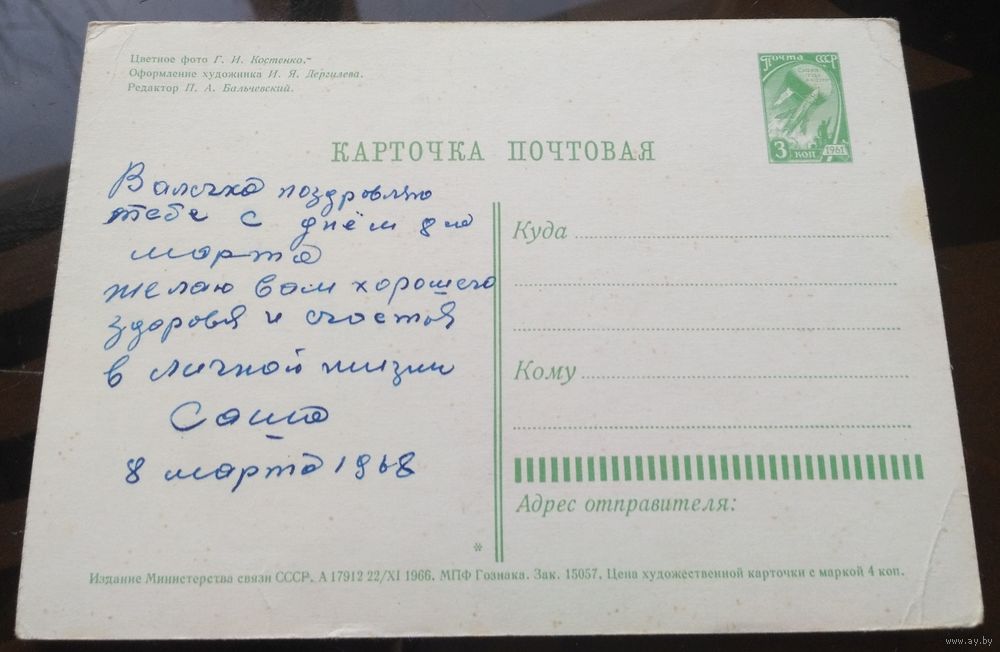 Цветное фото Г. И. Костенко.
Оформление художника И. Я. Дергилева.
Редактор П. А. Бальчевский.
Почта СССР
3 коп 1961
КАРТОЧКА ПОЧТОВАЯ
Валечка поздровляю
тебе с днём 8 го
марта
желаю вам хорошего
здоровя и счастья
в личной жизни
Саша
8 марта 1968
Куда
Кому
Адрес отправителя:
*
Издание Министерства связи СССР. А 17912 22/XI 1966. МПФ Гознака. Зак. 15057. Цена художественной карточки с маркой 4 коп.
www.ay.by